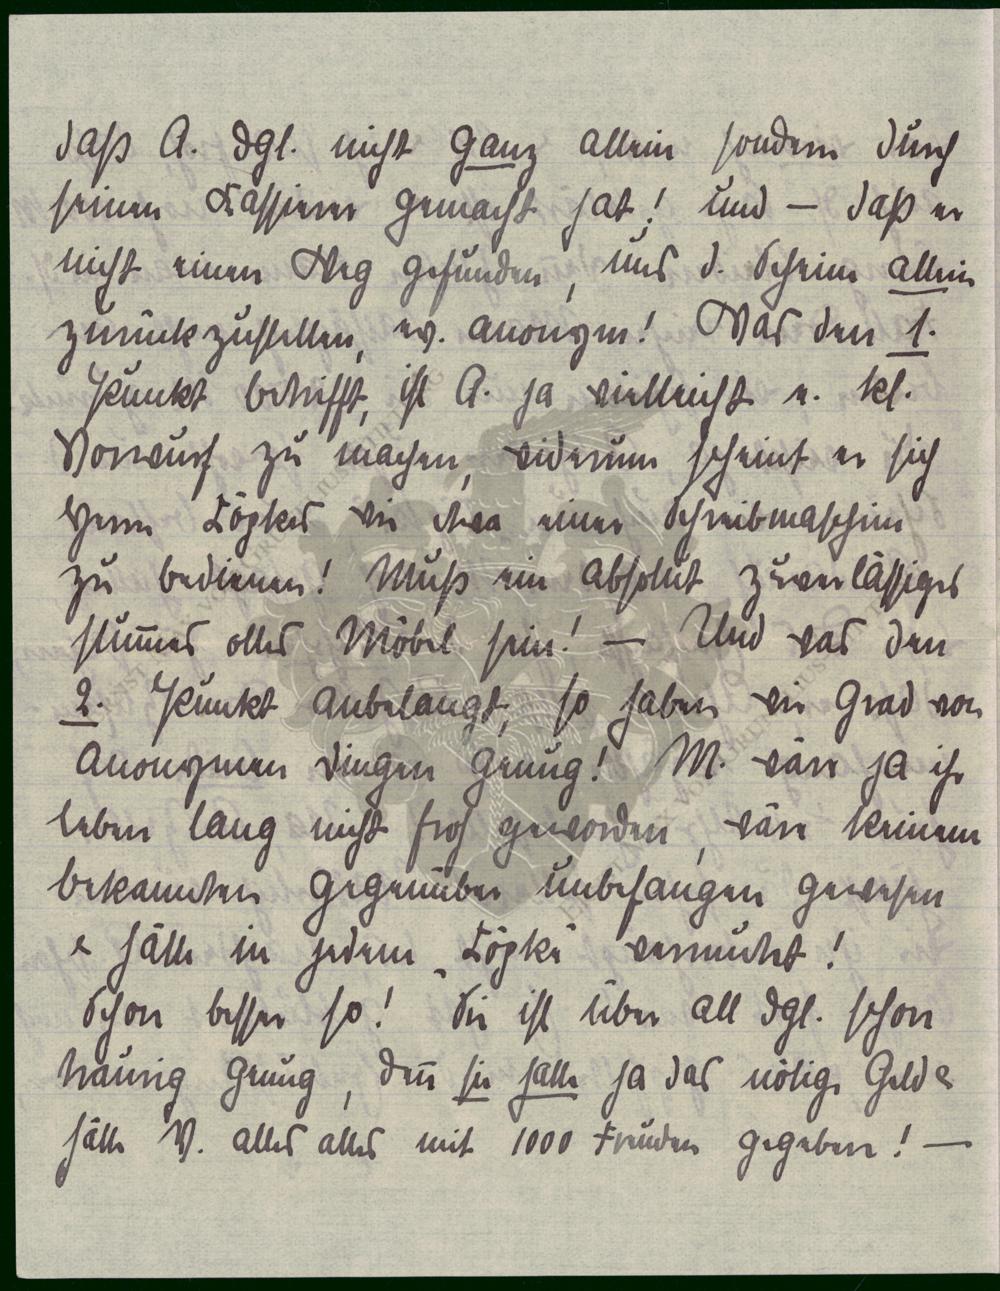 daß A. dgl. nicht ganz allein sondern durch
seinen Kassierer gemacht hat! Und — daß er
nicht einen Weg gefunden, uns d. Scheine allein
zurückzustellen, ev. anonym! Was den 1.
Punkt betrifft, ist A. ja vielleicht e. kl.
Vorwurf zu machen, widerum scheint er sich
Herrn Köpkes wie etwa einer Schreibmaschine
zu bedienen! Muß ein absolut zuverlässiges
stum̅es olles Möbel sein! — Und was den
2. Punkt anbelangt, so haben wir Grad von
anonymen Dingen genug! M. wäre ja ihr
leben lang nicht froh geworden, wäre keinem
bekannten Gegenüber unbefangen gewesen
& hätte in jedem „Köpke" vermutet!
Schon besser so! Sie ist über all dgl. schon
traurig genug, den̅ sie hatte ja das nötige Geld &
hätte V. alles alles mit 1000 Freuden gegeben! —